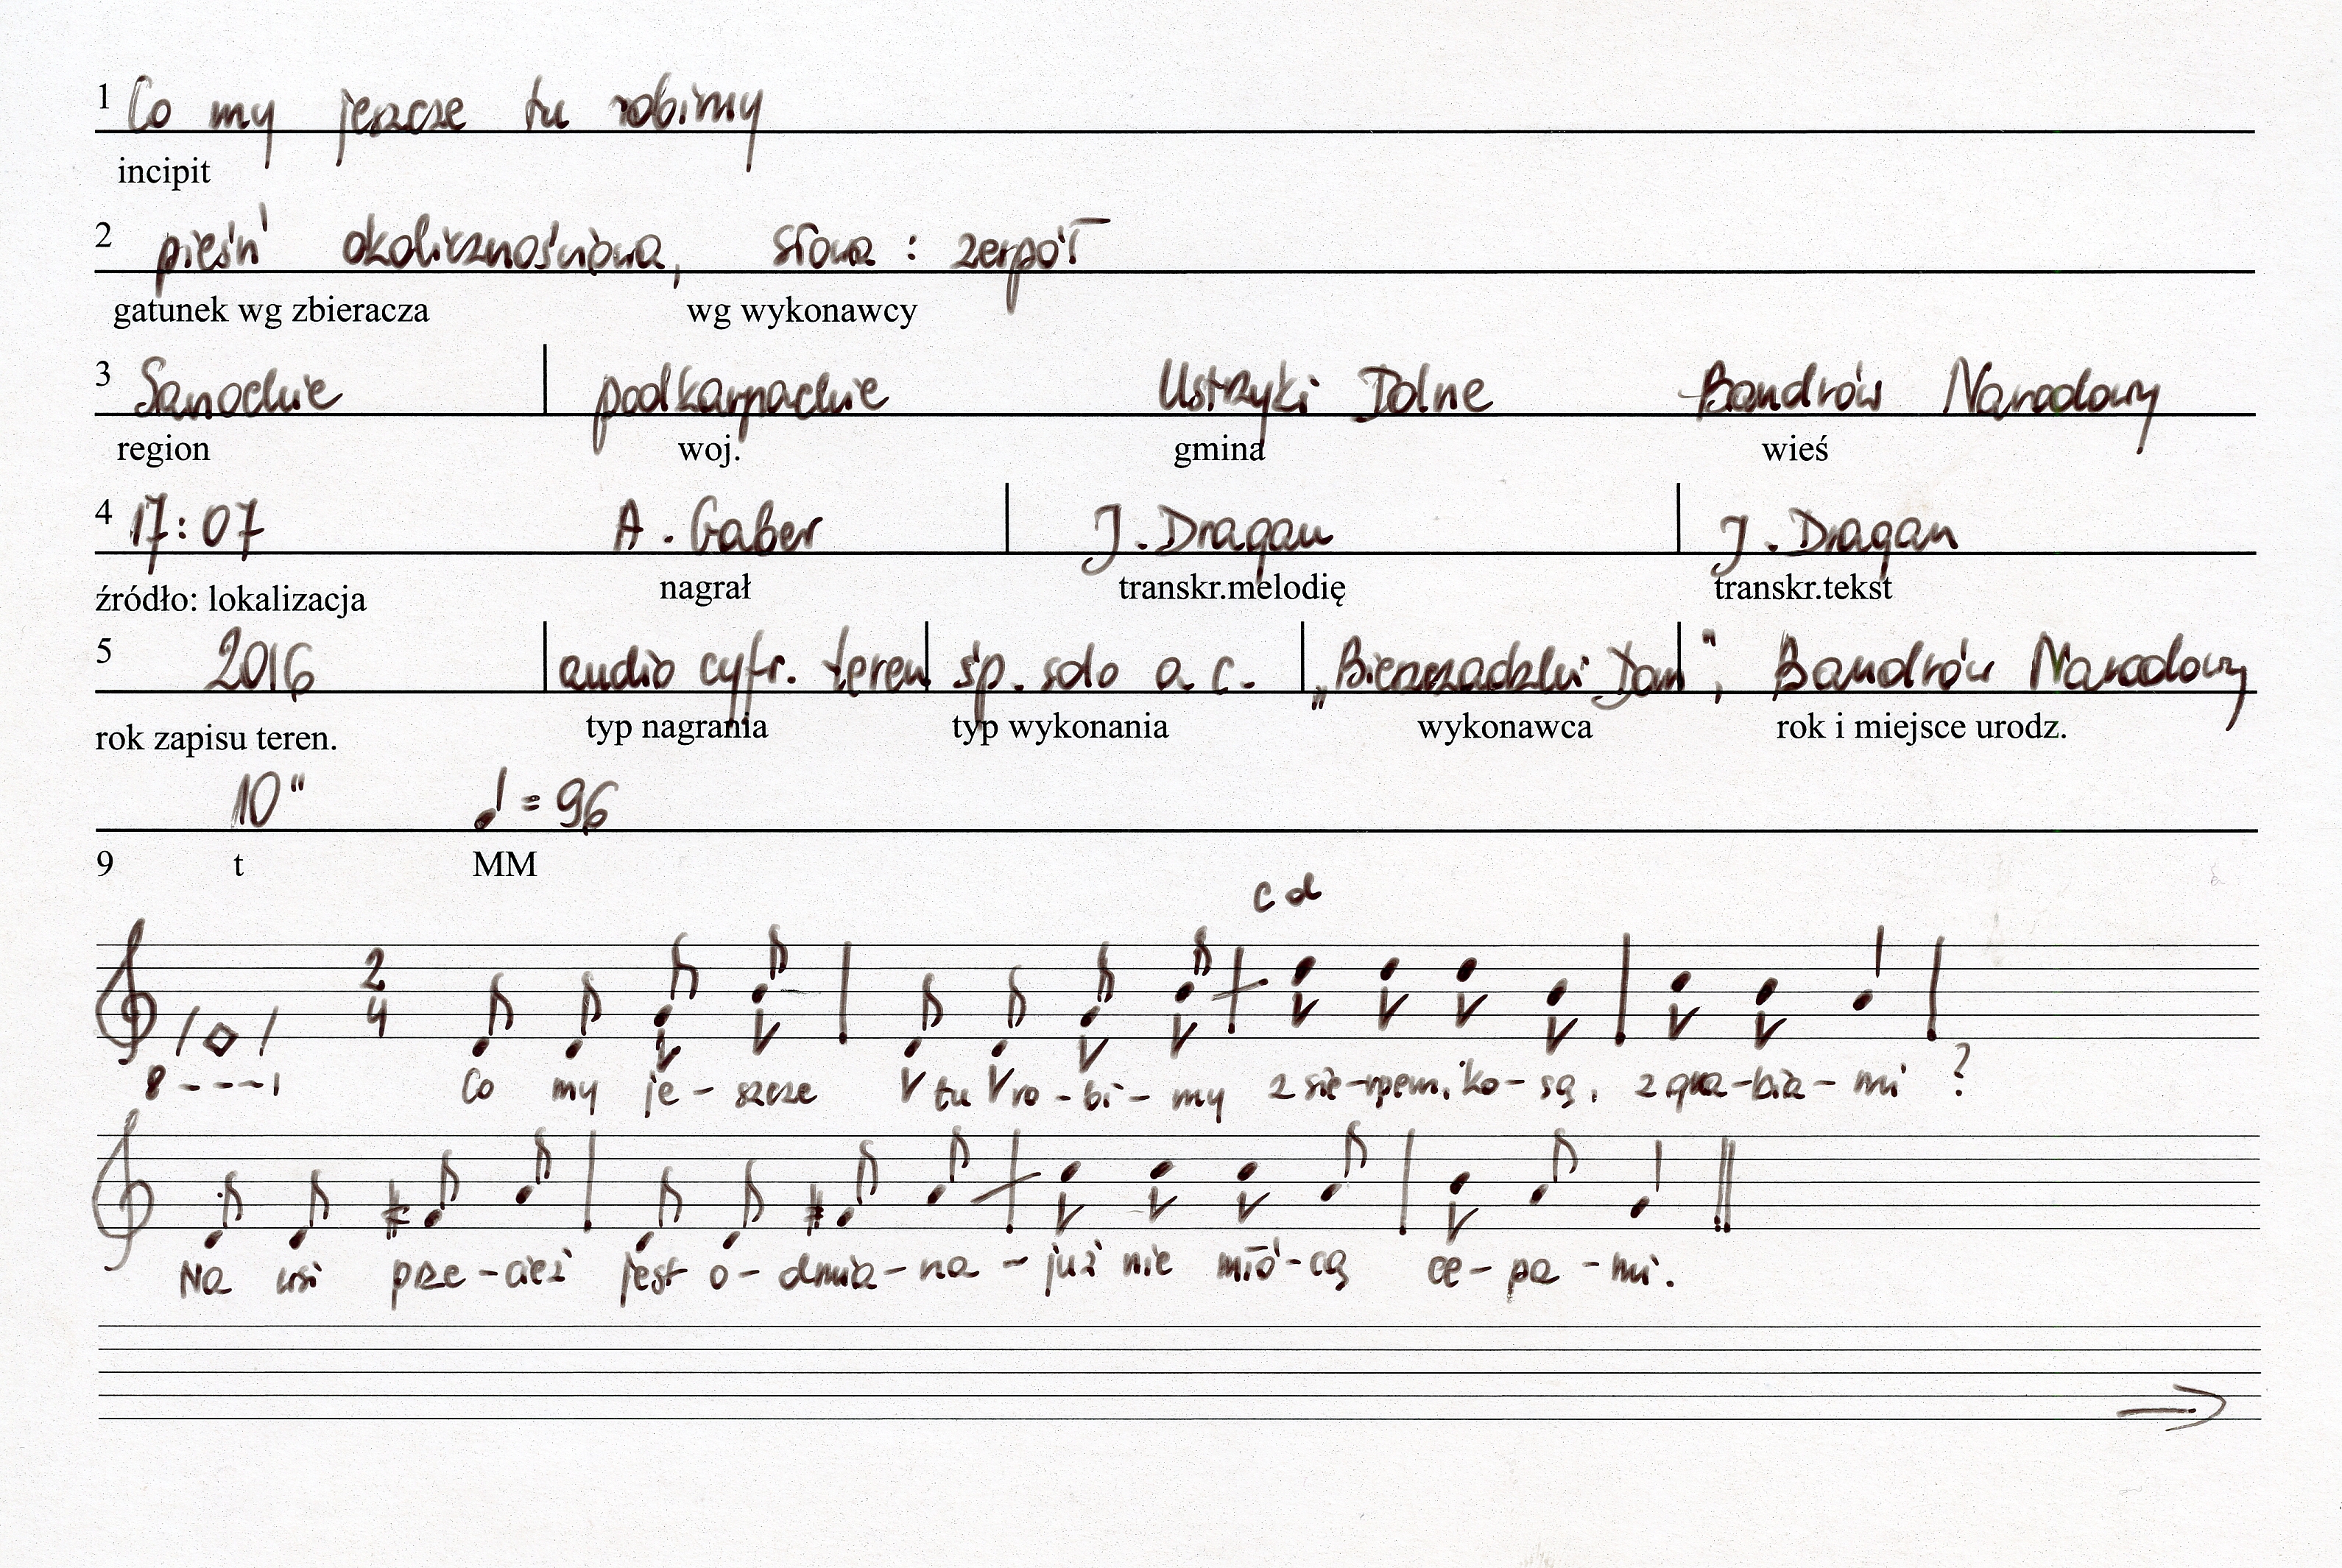 1 Co my jeszcze tu robimy
incipit
2 pieśń okolicznościowa, słowa : zespół
gatunek wg zbieracza wg wykonawcy
3 Sanockie podkarpackie Ustrzyki Dolne Bandrów Narodowy
region woj. gmina wieś
4 17:07 A. Gaber J. Dragan J. Dragan
źródło: lokalizacja nagrał transkr.melodię transkr.tekst
5 2016 audio cyfr. teren śp. solo a c. „Bieszczadzki Dom", Bandrów Narodowy
rok zapisu teren. typ nagrania typ wykonania wykonawca rok i miejsce urodz.
10" = 96
9 t MM
c d
2
4
8 - - - 1 Co my je - szcze tu ro - bi - my z sie - rpem, ko - są, z gra - bia - mi ?
Na wsi prze - cież jest o - dmia - na - już nie młó - cą ce - pa - mi.